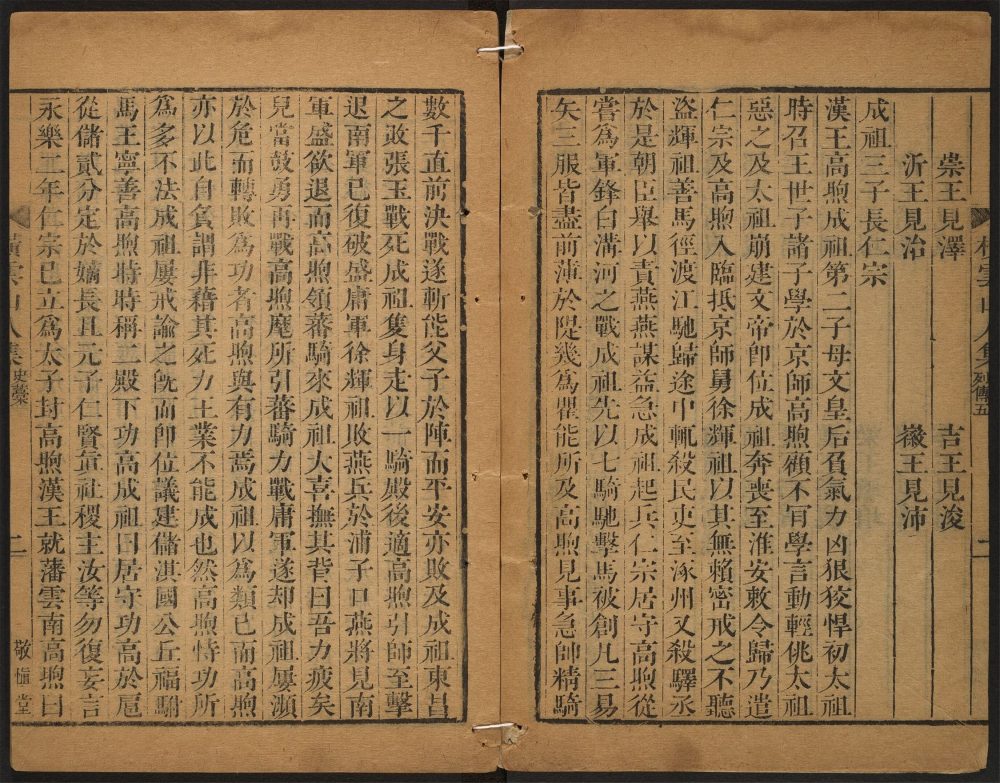 崇王見澤　吉王見浚
沂王見治　徽王見沛
成祖三子長仁宗
漢王高煦成祖第二子母文皇后負氣力凶狠狡悍初太祖
時召王世子諸子學於京師高煦顧不肎學言動輕佻太祖
惡之及太祖崩建文帝卽位成祖奔喪至淮安敕令歸乃遣
仁宗及高煦入臨抵京師舅徐輝祖以其無賴密戒之不聽
盜輝祖善馬徑渡江馳歸途中輒殺民吏至涿州又殺驛丞
於是朝臣舉以責燕燕謀益急成祖起兵仁宗居守高煦從
嘗爲軍鋒白溝河之戰成祖先以七騎馳擊馬被創凡三易
矢三服皆盡前薄於隄幾爲瞿能所及高煦見事急帥精騎
列傳五
二
數千直前決戰遂斬能父子於陣而平安亦敗及成祖東昌
之敗張玉戰死成祖隻身走以一騎殿後適高煦引師至擊
退南軍已復破盛庸軍徐輝祖敗燕兵於浦子口燕將見南
軍盛欲退而高煦領蕃騎來成祖大喜撫其背曰吾力疲矣
兒當鼓勇再戰高煦麾所引蕃騎力戰庸軍遂却成祖屢瀕
於危而轉敗爲功者高煦與有力焉成祖以爲類己而高煦
亦以此自負謂非藉其死力王業不能成也然高煦恃功所
爲多不法成祖屢戒諭之旣而卽位議建儲淇國公丘福駙
馬王寧善高煦時時稱二殿下功高成祖曰居守功高於扈
從儲貳分定於嫡長且元子仁賢宜社稷主汝等勿復妄言
永樂二年仁宗已立爲太子封高煦漢王就藩雲南高煦曰
雲山人集 史藁
二
敬愼堂